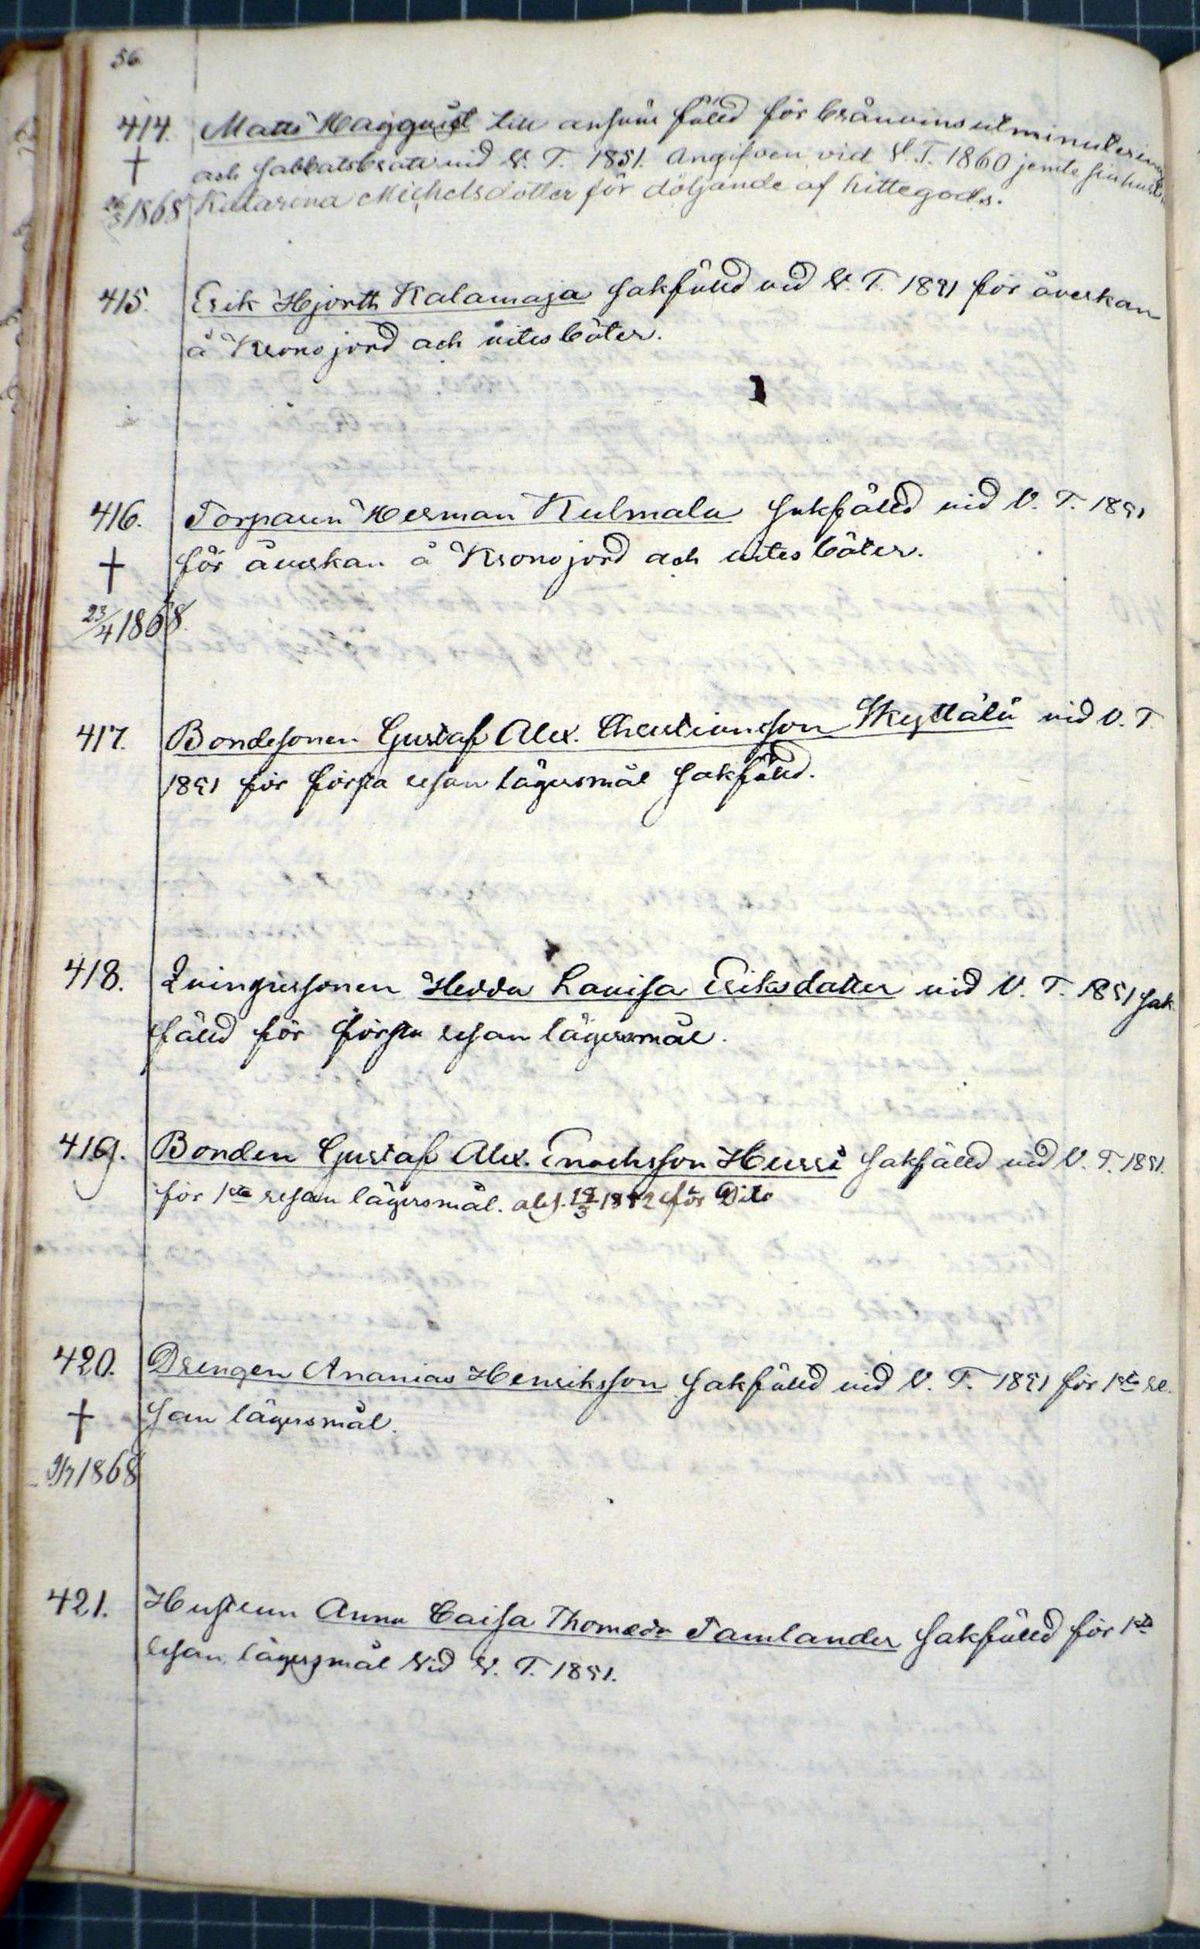 56.
414. Matts Haggqvist till ansvar fälld för brännvinsutminutering
† och sabbatsbrott vid V. T. 1851. Angifven vid V. T. 1860 jemte sin hustru
26/5 1868 Katarina Michelsdotter för döljande af hittegods.
415. Erik Hjortt Kalamaja sakfälld vid V. T. 1851 för åverkan
å Kronojord och vites böter.
416. Torparen Herman Kulmala sakfälld vid V. T. 1851
† för åverkan å Kronojord och vites böter.
23/4 1868.
417. Bondesonen Gustaf Alex. Christiansson Skyttälä vid V. T
1851 för första resan lägersmål sakfälld.
418. Qvinspersonen Hedda Lovisa Eriksdotter vid V. T. 1851 sak
fälld för första resan lägersmål.
419. Bonden Gustaf Alex. Enochsson Hussi sakfälld vid V. T. 1851.
för 1sta resan lägersmål. abs. 18/3 1852 för Dito
420. Drengen Ananias Henriksson sakfälld vid V. T. 1851 för 1sta re.
† san lägersmål.
1868
421. Hustrun Anna Caisa Thomasdr Tamlander sakfälld för 1sta
resan lägersmål vid V. T. 1851.